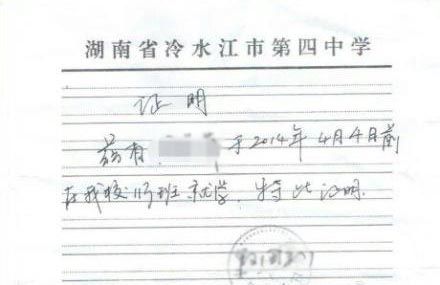 湖南省冷水江市第四中学
证明
兹有 于2014年4月4日前
在我校113班就学，特此证明.